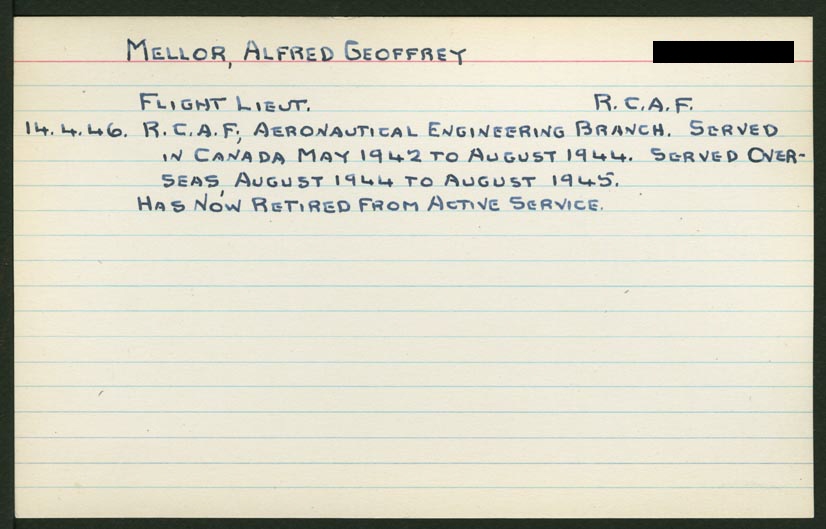 MELLOR, ALFRED GEOFFREY
FLIGHT LIEUT. R.C.A.F.
14.4.46. R.C.A.F., AERONAUTICAL ENGINEERING BRANCH. SERVED
IN CANADA MAY 1942 TO AUGUST 1944. SERVED OVER-
SEAS, AUGUST 1944 TO AUGUST 1945.
HAS NOW RETIRED FROM ACTIVE SERVICE.